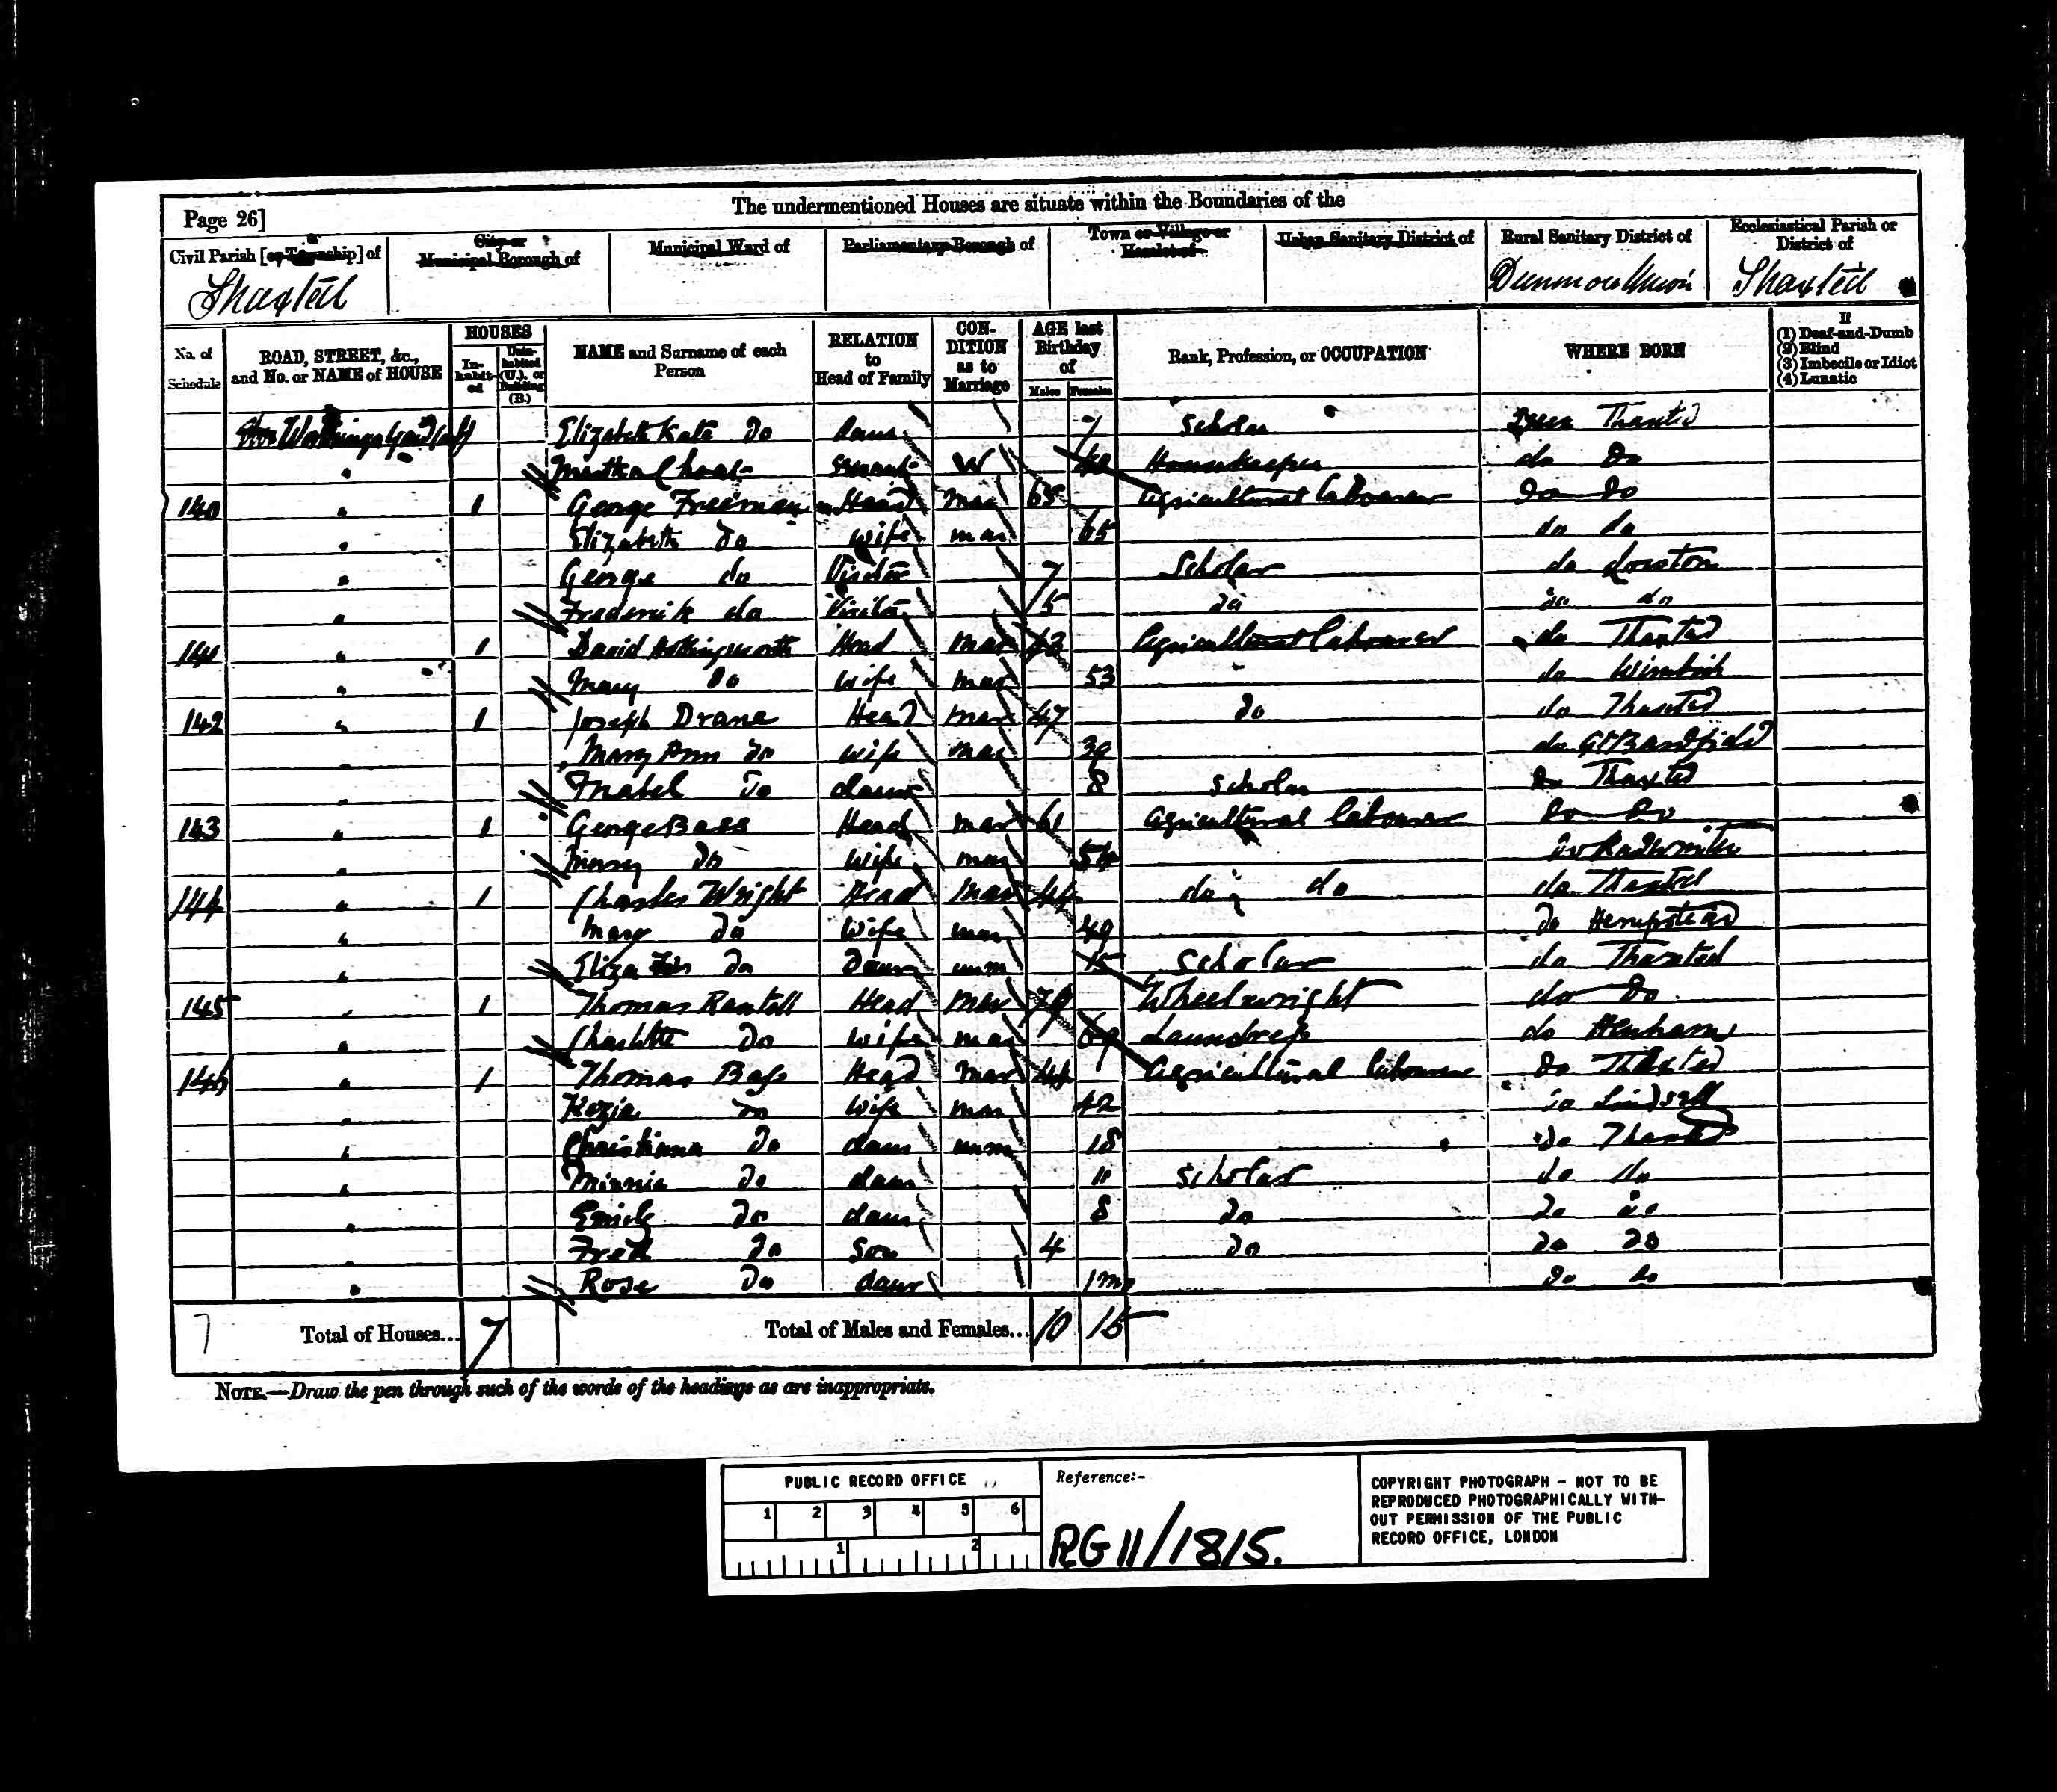 Page 26]
The undermentioned Houses are situate within the Boundaries of the
Civil Parish [or Township] of
City or Municipal Borough of
Municipal Ward of
Parliamentary Borough of
Town or Village or Hamlet of
Urban Sanitary District of
Rural Sanitary District of
Ecclesiastical Parish or District of
Thaxted Dunmow Union Thaxted
No. of Schedule
ROAD, STREET, &c., and No. or NAME of HOUSE
HOUSES
In-habit-ed
Unin-habited (U.), or Building (B.)
NAME and Surname of each Person
RELATION to Head of Family
CON-DITION as to Marriage
AGE last Birthday of
Males Females
Rank, Profession, or OCCUPATION
WHERE BORN
If
(1) Deaf-and-Dumb
(2) Blind
(3) Imbecile or Idiot
(4) Lunatic
Elizabeth Kate Do Daur 7 Scholar Thaxted
Martha Servant W Housekeeper do Do
140 1 George Freeman Head Mar 65 Agricultural Labourer Do Do
Elizabeth Do Wife mar 65 do do
George do Visitor 7 Scholar do
Frederick do Visitor 5 do do do
141 1 David Hollingsworth Head Mar Agricultural Labourer do Thaxted
Mary Do Wife mar 53 do Wimbish
142 1 Joseph Drane Head Mar 47 Do do Thaxted
Mary Ann Do Wife mar 39 do Gt Bardfield
Mabel Do daur 8 Scholar Do Thaxted
143 1 George Bass Head mar 61 Agricultural labourer Do Do
Mary Do Wife mar do Radwinter
144 1 Charles Wright Head Mar 44 do do do Thaxted
Mary Do Wife mar 49 Do Hempstead
Eliza Do Daur unm 15 Scholar do Thaxted
145 1 Thomas Head Mar 79 Wheelwright do Do
Charlotte Do Wife mar 69 Laundress do Henham
146 1 Thomas Bass Head Mar 44 Agricultural labourer Do Thaxted
Kezia Do Wife mar 42 do Lindsell
Christiana Do daur unm 18 Do Thaxted
Minnie Do daur 11 Scholar do do
Do daur 8 Do Do do
Fred Do Son 4 Do Do Do
Rose Do daur 1m Do do
7 Total of Houses... 7 Total of Males and Females... 10 15
NOTE.—Draw the pen through such of the words of the headings as are inappropriate.
PUBLIC RECORD OFFICE
1 2 3 4 5 6
1 2
Reference:-
RG 11/1815.
COPYRIGHT PHOTOGRAPH - NOT TO BE
REPRODUCED PHOTOGRAPHICALLY WITH-
OUT PERMISSION OF THE PUBLIC
RECORD OFFICE, LONDON